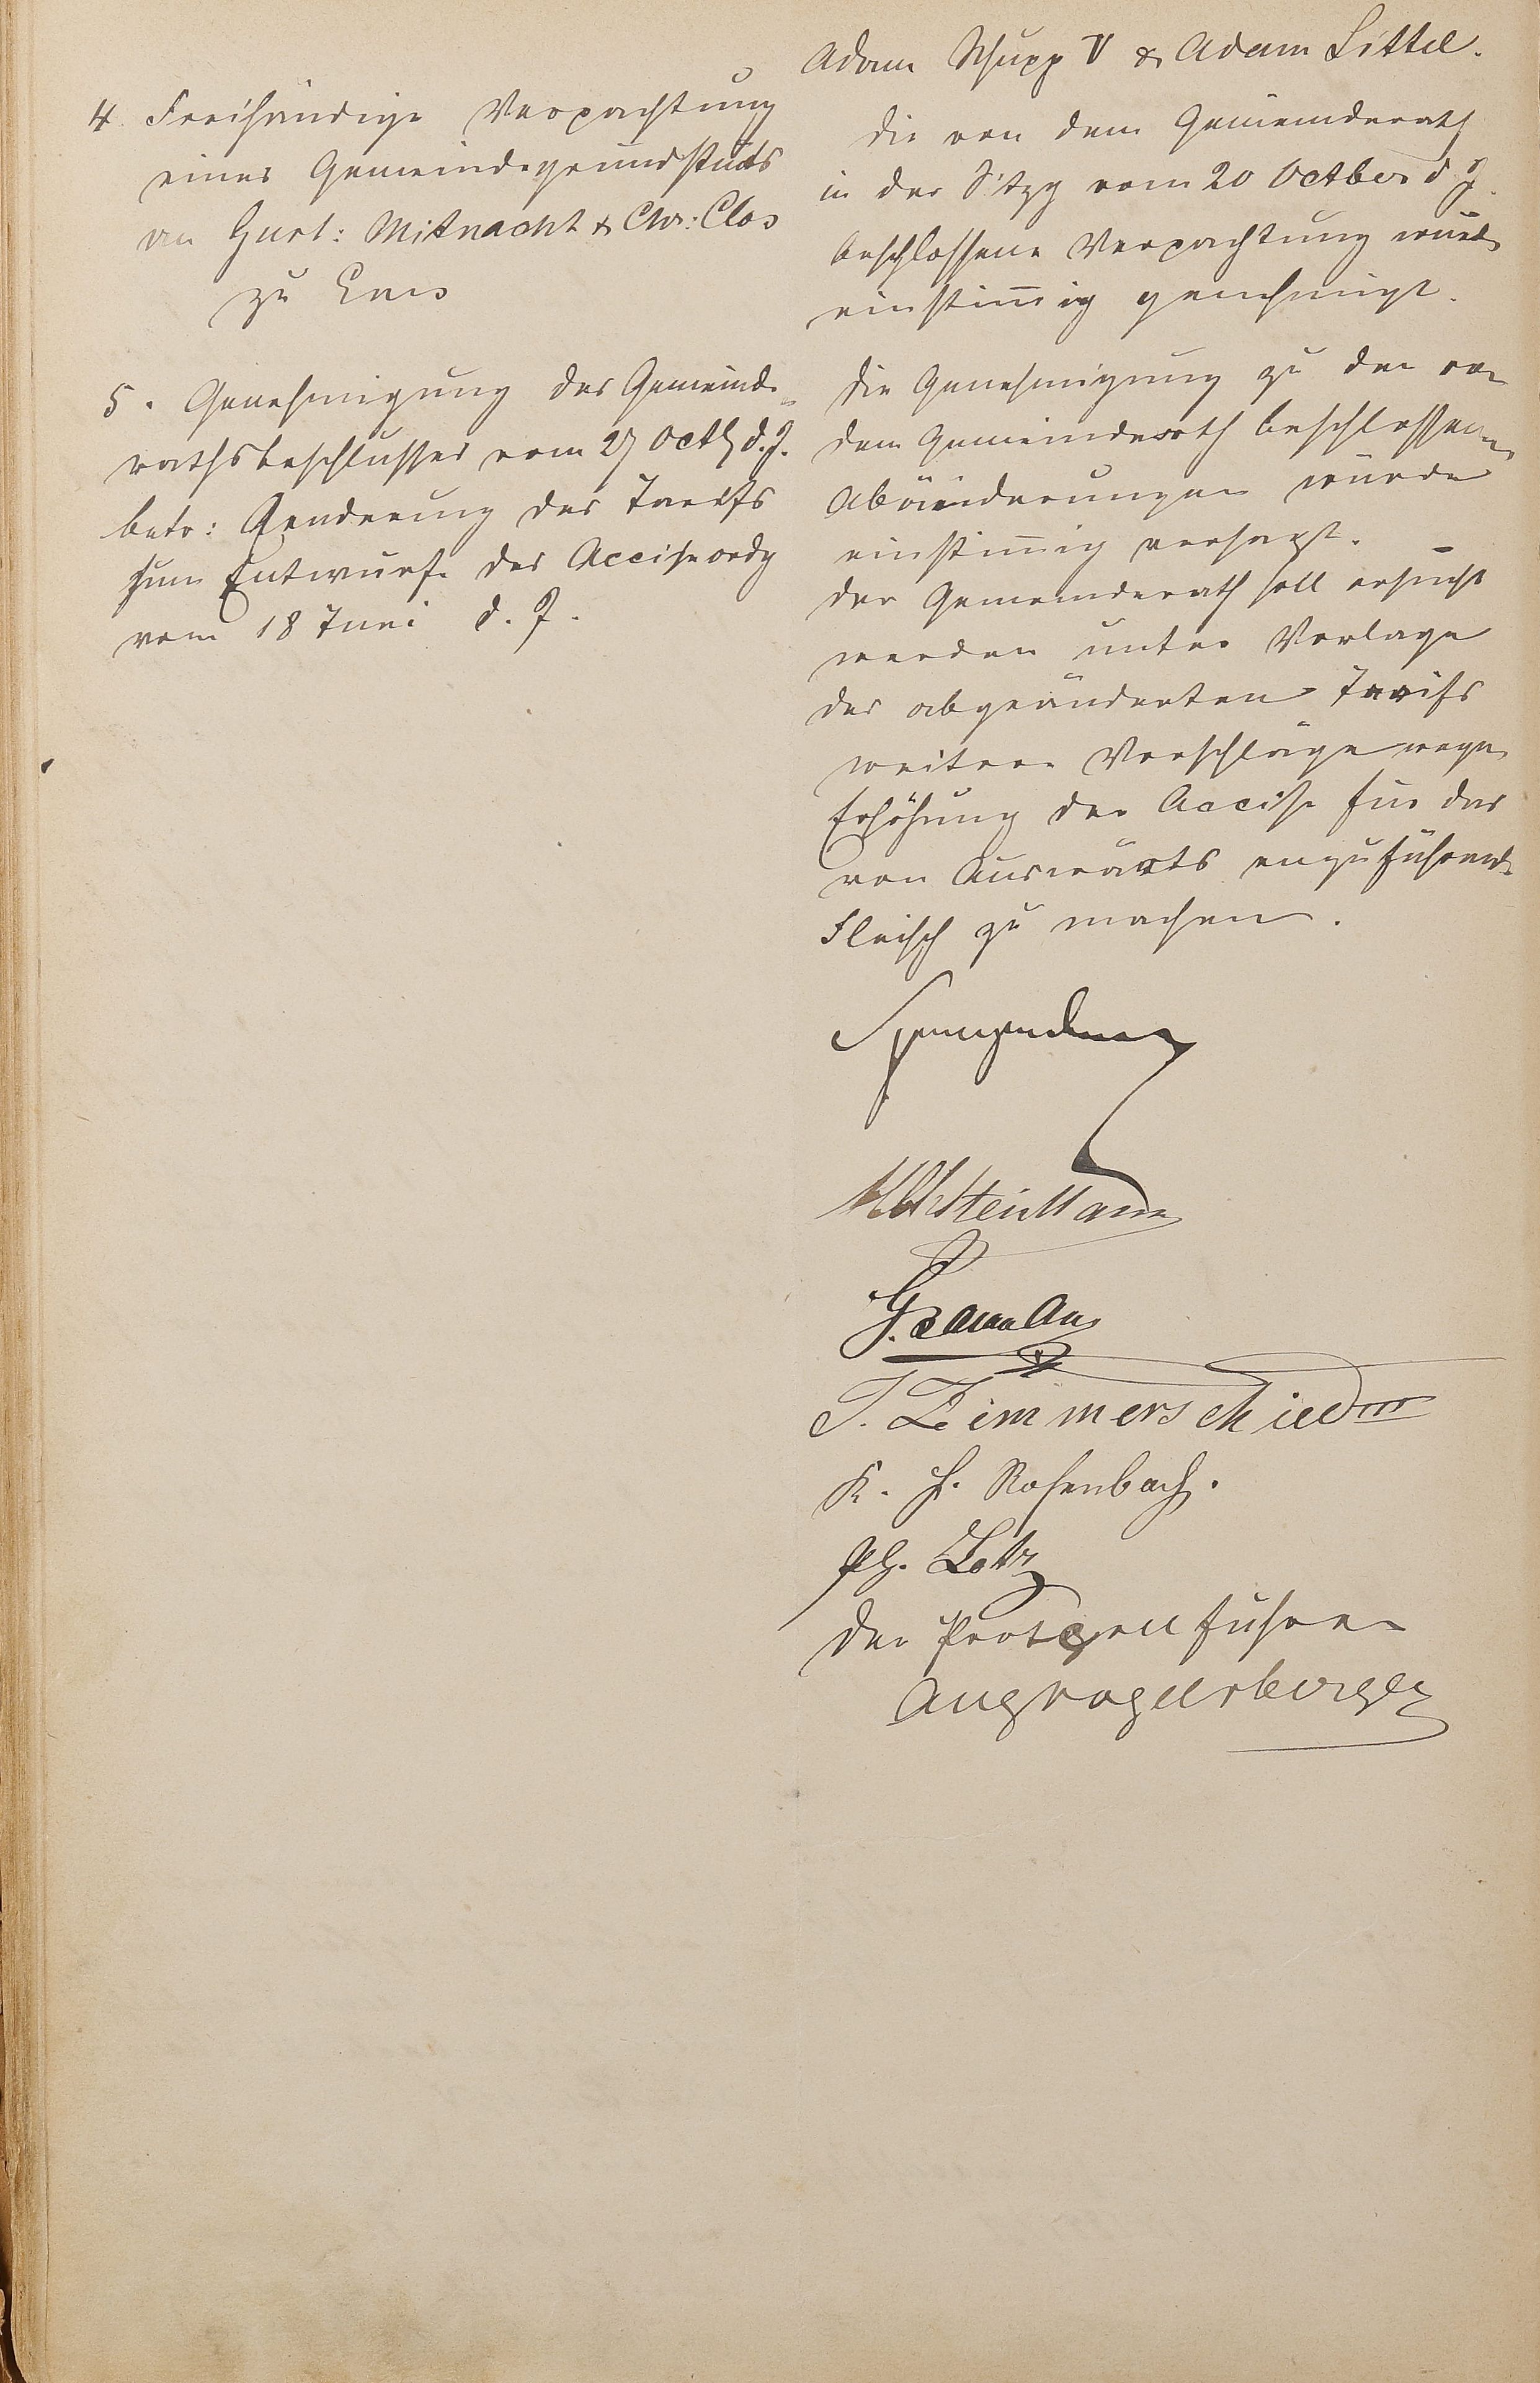 Adam Schupp V & Adam Littel.
4. Freihändige Verpachtung
eines Gemeindegrundstücks
an Gust: Mitnacht & Chr: Clos
zu Ems
die von dem Gemeinderath
in der Sitzg vom 20 October d. J.
beschlossene Verpachtung wurde
einstim̅ig genehmigt.
5. Genehmigung des Gemeinde-
rathsbeschlusses vom 27 Octb d. J.
betr: Aenderung des Tarifs
zum Entwurfe der Acciseordg
vom 18 Juni d. J.
Die Genehmigung zu den von
dem Gemeinderath beschlossenen
Abänderungen wurde
einstim̅ig versagt. –
Der Gemeinderath soll ersucht
werden unter Vorlage
des abgeänderten Tarifs
weitere Vorschläge wegen
Erhöhung der Accise für das
von Auswärts einzuführende
Fleisch zu machen.
Spangenberg
J. Zimmerschied
K. H. Rosenbach.
Ph. Lotz
Der Protocollführer
Aug Vogelsberger